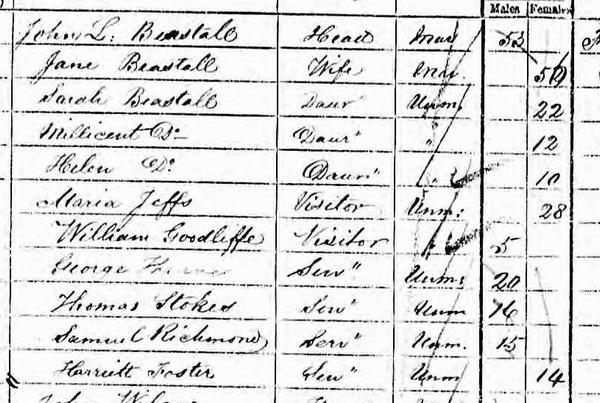 Males Females
John L. Beastall Head Mar 53
Jane Beastall Wife Mar. 50
Sarah Beastall Daur" Unm. 22
Millicent Do Daur" " 12
Helen Do. Daur" " 10
Maria Jeffs Visitor Unm: 28
William Goodliffe Visitor 5
George Serv" Unm: 20
Thomas Stokes Serv" Unm 16
Samuel Richmond Serv" Unm. 15
Harriett Foster Serv" Unm 14
John